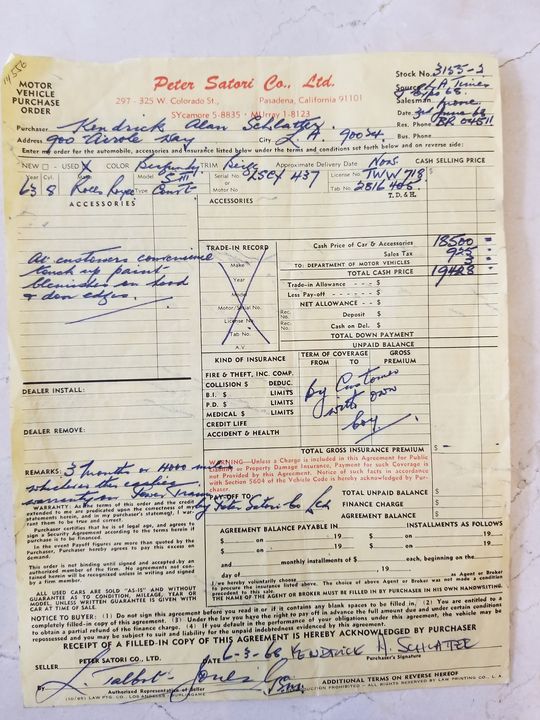 14556
MOTOR VEHICLE PURCHASE ORDER
Peter Satori Co., Ltd.
297 - 325 W. Colorado St., Pasadena, California 91101
SYcamore 5-8835 • MUrray 1-8123
Stock No. 3155-2
Source L.A. Times
Salesman
Date 3rd June 68
Res. Phone BR 04511
Bus. Phone
Purchaser Kendrick Alan Schlatter
Address 900 Airole Way City L.A. 90024
Enter my order for the automobile, accessories and insurance listed below under the terms and conditions set forth below and on reverse side:
NEW □ - USED X COLOR Burgundy TRIM Beige Approximate Delivery Date Now CASH SELLING PRICE
Year 63 Cyl. 8 Make Rolls Royce Model SIII Type Conv't Serial No or Motor No LSCX 437 License No. TWW 713
Tab No. 2816 405
T. D. & H.
ACCESSORIES
ACCESSORIES
At customers convenience
touch up paint
blemishes on hood
& door edges.
TRADE-IN RECORD
Make
Year
Model
Motor/Serial No.
License No.
Tab No.
A.V.
Cash Price of Car & Accessories 18500
Sales Tax 925
TO: DEPARTMENT OF MOTOR VEHICLES 3
TOTAL CASH PRICE 19428
Trade-in Allowance - - - $
Less Pay-off - - - - - $
NET ALLOWANCE - - - $
Rec. No. Deposit $
Rec. No. Cash on Del. $
TOTAL DOWN PAYMENT
UNPAID BALANCE
KIND OF INSURANCE TERM OF COVERAGE FROM TO GROSS PREMIUM
FIRE & THEFT, INC. COMP.
COLLISION $ DEDUC.
B.I. $ LIMITS
P.D. $ LIMITS
MEDICAL $ LIMITS
CREDIT LIFE
ACCIDENT & HEALTH
by Customer
with own
Coy.
DEALER INSTALL:
DEALER REMOVE:
TOTAL GROSS INSURANCE PREMIUM $
WARNING—Unless a Charge is included in this Agreement for Public Liability or Property Damage Insurance, Payment for such Coverage is not Provided by this Agreement. Notice of such facts in accordance with Section 5604 of the Vehicle Code is hereby acknowledged by Purchaser.
REMARKS: 3 months or 4000 miles
whichever the earlier
warranty on Power Train
by Peter Satori Co Ltd
PAY-OFF TO
TOTAL UNPAID BALANCE $
FINANCE CHARGE $
AGREEMENT BALANCE $
WARRANTY: As the terms of this order and the credit extended to me are predicated upon the correctness of my statements herein, and in my purchaser's statement, I warrant them to be true and correct.
Purchaser certifies that he is of legal age, and agrees to sign a Security Agreement according to the terms herein if purchase is to be financed.
In the event Payoff figures are more than quoted by the Purchaser, Purchaser hereby agrees to pay this excess on demand.
This order is not binding until signed and accepted by an authorized member of the firm. No agreements not contained herein will be recognized unless in writing and signed by a firm member.
ALL USED CARS ARE SOLD "AS-IS" AND WITHOUT GUARANTEE AS TO CONDITION, MILEAGE, YEAR OR MODEL, UNLESS WRITTEN GUARANTEE IS GIVEN WITH CAR AT TIME OF SALE.
AGREEMENT BALANCE PAYABLE IN INSTALLMENTS AS FOLLOWS
$ on , 19 $ on , 19
$ on , 19 $ on , 19
and monthly installments of $ each, beginning on the
day of , 19
I/we hereby voluntarily choose as Agent or Broker
to procure the insurance listed above. The choice of above Agent or Broker was not made a condition precedent to this sale.
THE NAME OF THE AGENT OR BROKER MUST BE FILLED IN BY PURCHASER IN HIS OWN HANDWRITING.
NOTICE TO BUYER: (1) Do not sign this agreement before you read it or if it contains any blank spaces to be filled in. (2) You are entitled to a completely filled-in copy of this agreement. (3) Under the law you have the right to pay off in advance the full amount due and under certain conditions to obtain a partial refund of the finance charge. (4) If you default in the performance of your obligations under this agreement, the vehicle may be repossessed and you may be subject to suit and liability for the unpaid indebtedness evidenced by this agreement.
RECEIPT OF A FILLED-IN COPY OF THIS AGREEMENT IS HEREBY ACKNOWLEDGED BY PURCHASER
SELLER PETER SATORI CO., LTD. DATE 6-3-68 KENDRICK A. SCHLATTER
Purchaser's Signature
By L. Talbot-Jones
Authorized Representative of Seller
ADDITIONAL TERMS ON REVERSE HEREOF